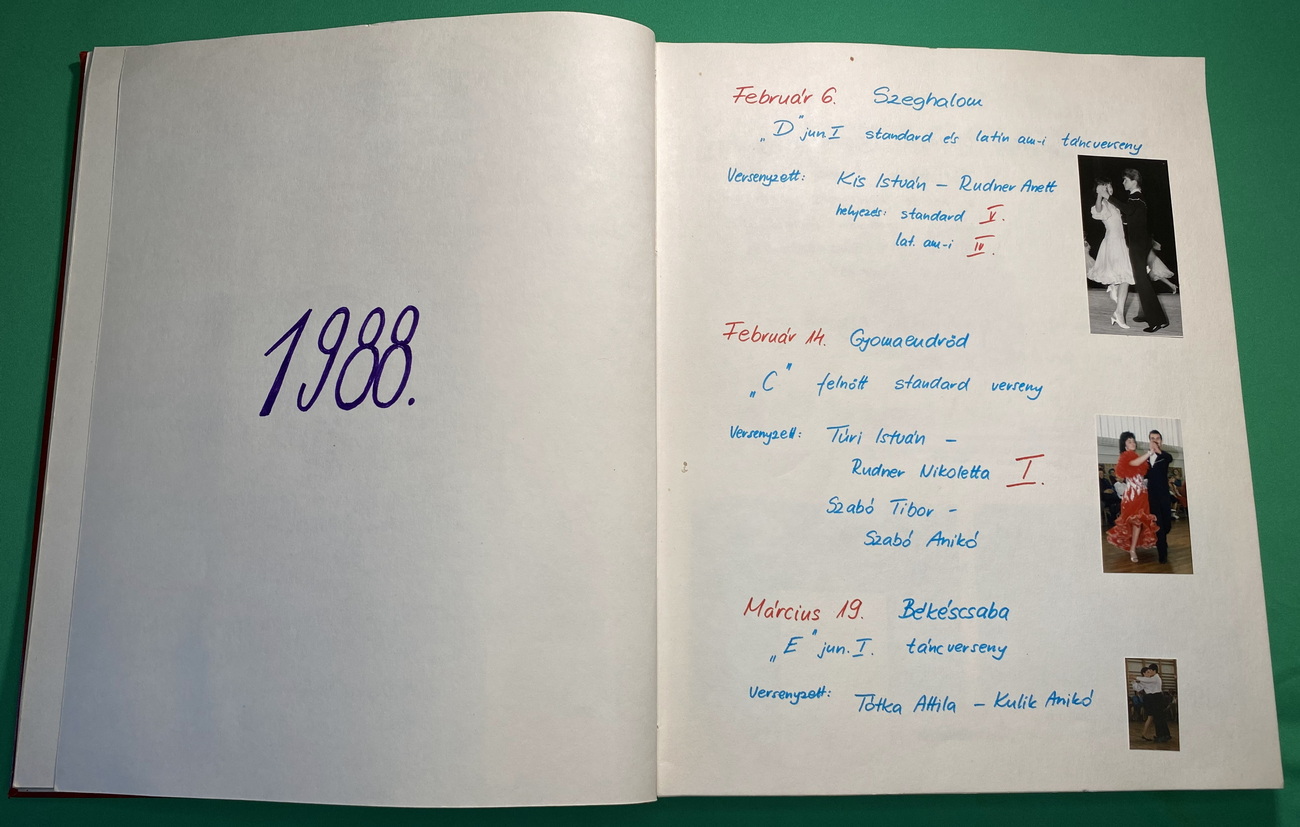 1988.
Február 6. Szeghalom
„D” jun. I standard és latin am-i táncverseny
Versenyzett: Kis István – Rudner Anett
helyezés: standard V.
lat. am-i IV.
Február 14. Gyomaendrőd
„C” felnőtt standard verseny
Versenyzett: Túri István –
Rudner Nikoletta I.
Szabó Tibor –
Szabó Anikó
Március 19. Békéscsaba
„E” jun. I. táncverseny
Versenyzett: Tótka Attila – Kulik Anikó